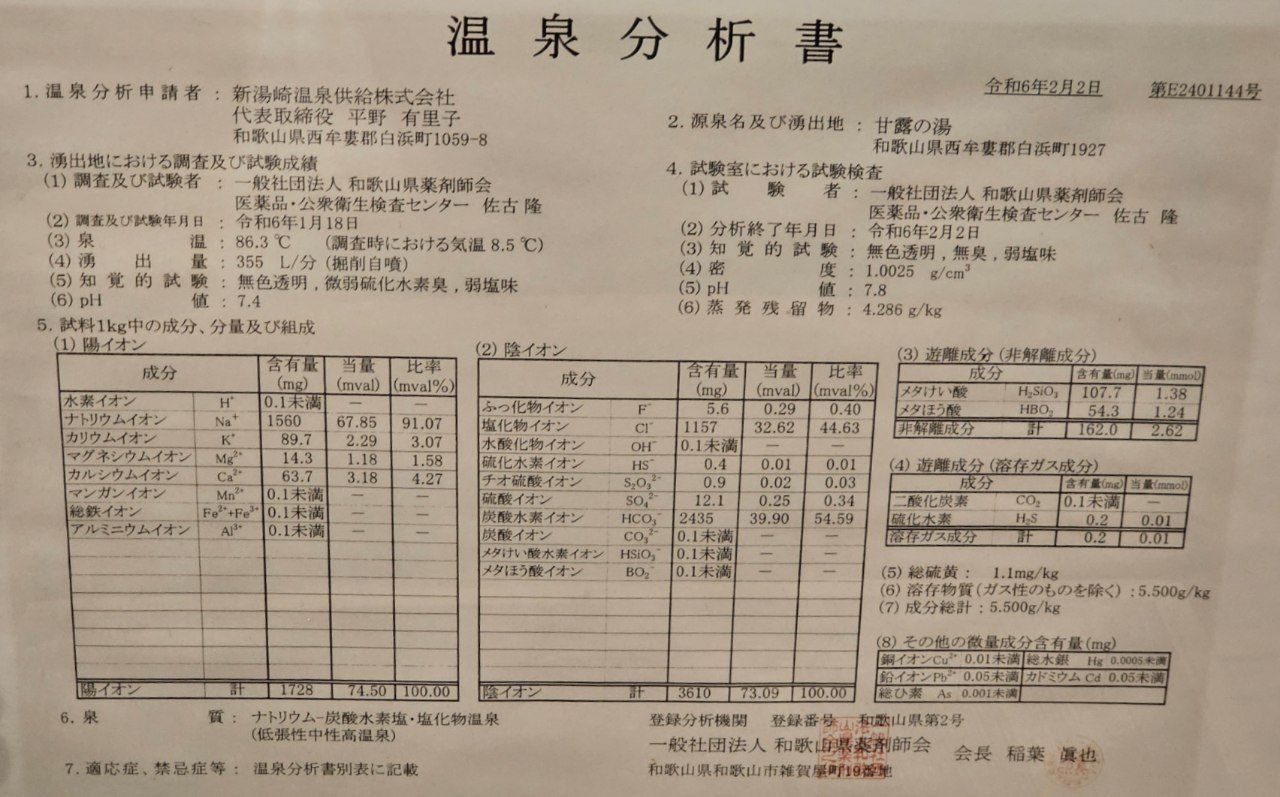 温泉分析書
令和6年2月2日 第E2401144号
1. 温泉分析申請者 : 新湯崎温泉供給株式会社
代表取締役 平野 有里子
和歌山県西牟婁郡白浜町1059-8
2. 源泉名及び湧出地 : 甘露の湯
和歌山県西牟婁郡白浜町1927
3. 湧出地における調査及び試験成績
(1) 調査及び試験者 : 一般社団法人 和歌山県薬剤師会
医薬品・公衆衛生検査センター 佐古 隆
(2) 調査及び試験年月日 : 令和6年1月18日
(3) 泉温 : 86.3 ℃ (調査時における気温 8.5 ℃)
(4) 湧出量 : 355 L/分 (掘削自噴)
(5) 知覚的試験 : 無色透明 , 微弱硫化水素臭 , 弱塩味
(6) pH値 : 7.4
4. 試験室における試験検査
(1) 試験者 : 一般社団法人 和歌山県薬剤師会
医薬品・公衆衛生検査センター 佐古 隆
(2) 分析終了年月日 : 令和6年2月2日
(3) 知覚的試験 : 無色透明 , 無臭 , 弱塩味
(4) 密度 : 1.0025 g/cm³
(5) pH値 : 7.8
(6) 蒸発残留物 : 4.286 g/kg
5. 試料1kg中の成分、分量及び組成
(1) 陽イオン
成分 含有量(mg) 当量(mval) 比率(mval%)
水素イオン H⁺ 0.1未満 — —
ナトリウムイオン Na⁺ 1560 67.85 91.07
カリウムイオン K⁺ 89.7 2.29 3.07
マグネシウムイオン Mg²⁺ 14.3 1.18 1.58
カルシウムイオン Ca²⁺ 63.7 3.18 4.27
マンガンイオン Mn²⁺ 0.1未満 — —
総鉄イオン Fe²⁺+Fe³⁺ 0.1未満 — —
アルミニウムイオン Al³⁺ 0.1未満 — —
陽イオン 計 1728 74.50 100.00
(2) 陰イオン
成分 含有量(mg) 当量(mval) 比率(mval%)
ふっ化物イオン F⁻ 5.6 0.29 0.40
塩化物イオン Cl⁻ 1157 32.62 44.63
水酸化物イオン OH⁻ 0.1未満 — —
硫化水素イオン HS⁻ 0.4 0.01 0.01
チオ硫酸イオン S₂O₃²⁻ 0.9 0.02 0.03
硫酸イオン SO₄²⁻ 12.1 0.25 0.34
炭酸水素イオン HCO₃⁻ 2435 39.90 54.59
炭酸イオン CO₃²⁻ 0.1未満 — —
メタけい酸水素イオン HSiO₃⁻ 0.1未満 — —
メタほう酸イオン BO₂⁻ 0.1未満 — —
陰イオン 計 3610 73.09 100.00
(3) 遊離成分 (非解離成分)
成分 含有量(mg) 当量(mmol)
メタけい酸 H₂SiO₃ 107.7 1.38
メタほう酸 HBO₂ 54.3 1.24
非解離成分 計 162.0 2.62
(4) 遊離成分 (溶存ガス成分)
成分 含有量(mg) 当量(mmol)
二酸化炭素 CO₂ 0.1未満 —
硫化水素 H₂S 0.2 0.01
溶存ガス成分 計 0.2 0.01
(5) 総硫黄 : 1.1mg/kg
(6) 溶存物質(ガス性のものを除く) : 5.500g/kg
(7) 成分総計 : 5.500g/kg
(8) その他の微量成分含有量(mg)
銅イオンCu²⁺ 0.01未満 総水銀 Hg 0.0005未満
鉛イオンPb²⁺ 0.05未満 カドミウム Cd 0.05未満
総ひ素 As 0.001未満
6. 泉質 : ナトリウム-炭酸水素塩・塩化物温泉
(低張性中性高温泉)
7. 適応症、禁忌症等 : 温泉分析書別表に記載
登録分析機関 登録番号 和歌山県第2号
一般社団法人 和歌山県薬剤師会 会長 稲葉 眞也
和歌山県和歌山市雑賀屋町19番地